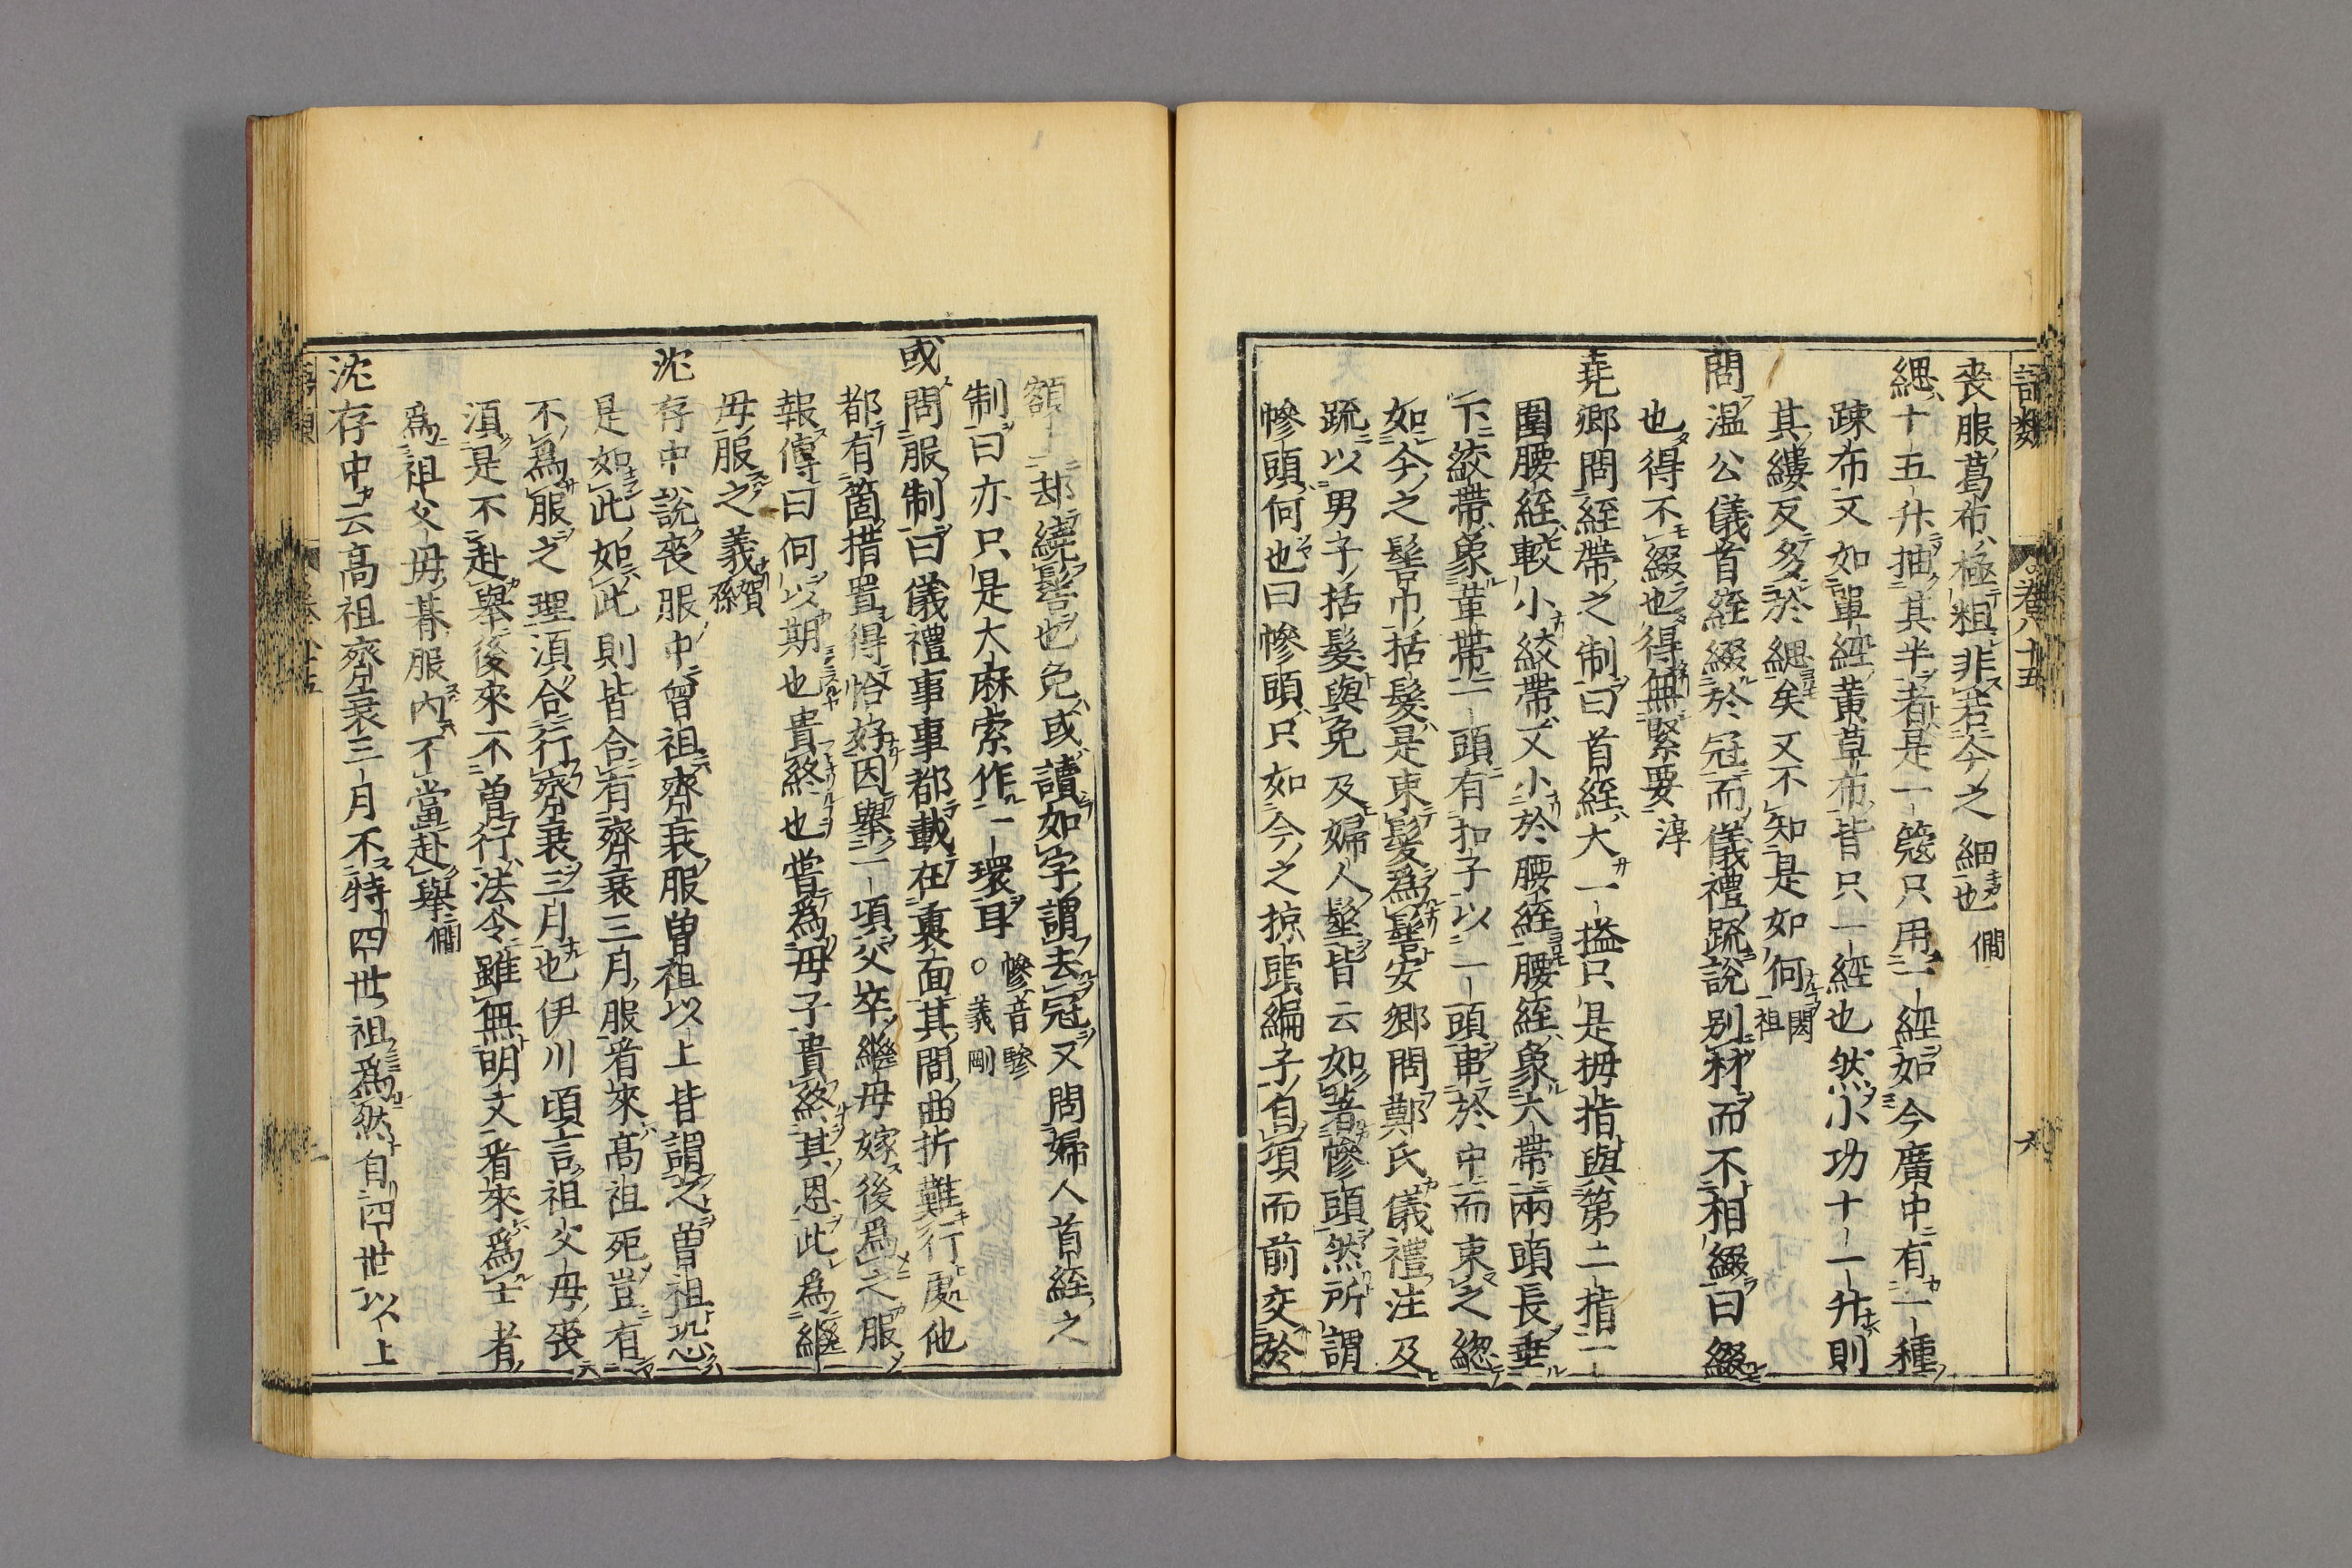 語類
卷八十五
六
喪服葛布極粗非若今之細也 僩
緦十五升抽其半者是一簆只用一經如今廣中有一種
踈布又如單經黃草布皆只一經也然小功十一升則
其縷反多於緦矣又不知是如何 閎祖
問温公儀首絰綴於冠而儀禮䟽說别材而不相綴曰綴
也得不綴也得無緊要 淳
堯卿問絰帶之制曰首絰大一搤只是拇指與第二指一
圍腰絰較小絞帶又小於腰絰腰絰象大帶兩頭長垂
下絞帶象革帶一頭有扣子以一頭串於中而束之緫
如今之髻巾括髮是束髮爲髻安卿問鄭氏儀禮注及
䟽以男子括髮與免及婦人髽皆云如著幓頭然所謂
幓頭何也曰幓頭只如今之掠頭編子自項而前交於
額却繞髻也免或讀如字謂去冠又問婦人首絰之
制曰亦只是大麻索作一環耳 幓音驂 ○義剛
或問服制曰儀禮事事都載在裏面其間曲折難行處他
都有箇措置得恰好因舉一項父卒繼母嫁後爲之服
報傳曰何以期也貴終也嘗爲母子貴終其恩此爲繼
母服之義 賀孫
沈存中說喪服中曾祖齊衰服曾祖以上皆謂之曾祖恐
是如此如此則皆合有齊衰三月服看來高祖死豈有
不爲服之理須合行齊衰三月也伊川頃言祖父母喪
須是不赴舉後來不曾行法令雖無明文看來爲士者
爲祖父母朞服內不當赴舉 僩
沈存中云高祖齊衰三月不特四世祖爲然自四世以上